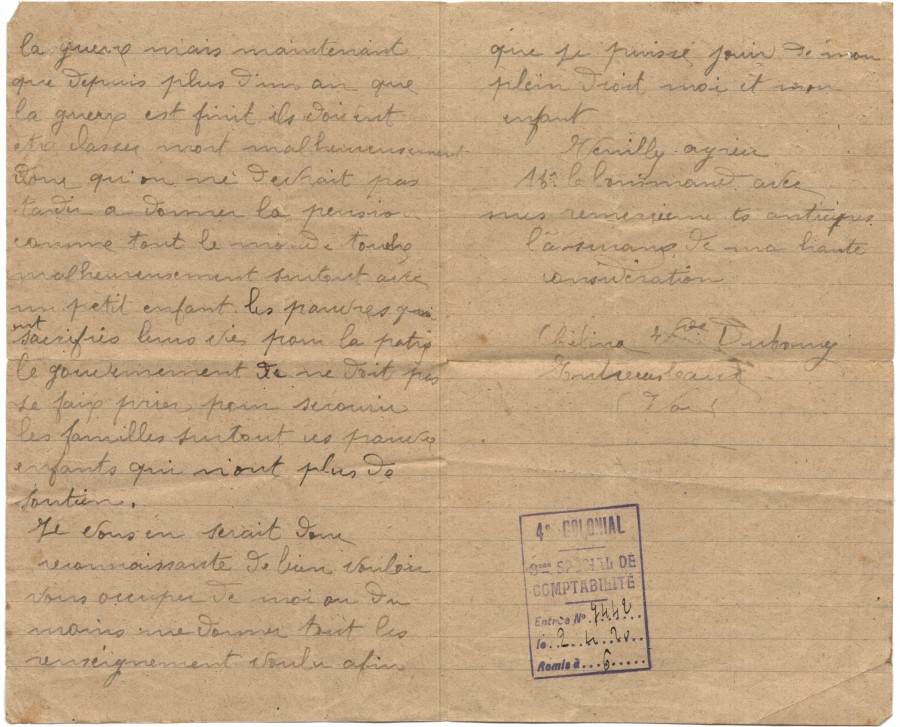 la guerre mais maintenant
que depuis plus d'un an que
la guerre est finit ils doivent
etre classer mort malheureusement
donc qu'on ne devrait pas
tarder a donner la pension
comme tout le monde touche
malheureusement surtout avec
un petit enfant les pauvres qui
ont
sacrifiés leurs vies pour la patrie
le gouvernement de ne doit pas
se faix prier pour secourir
les familles surtout ces pauvres
enfants qui n'ont plus de
soutien.
Je vous en serait donc
reconnaissante de bien vouloir
vous occuper de moi ou du
moins me donner tout les
renseignement voulu afin
que je puisse jouir de mon
plein droit moi et mon
enfant
Veuilly agreer
Mr le Command avec
mes remerciements anticipes
l'assurance de ma haute
considération
Vve Dubourg
Entrecasteaux
(Var)
4e COLONIAL
SPÉCIAL DE
COMPTABILITÉ
Entrée No 7442
le 2.4.20
Remis à 6